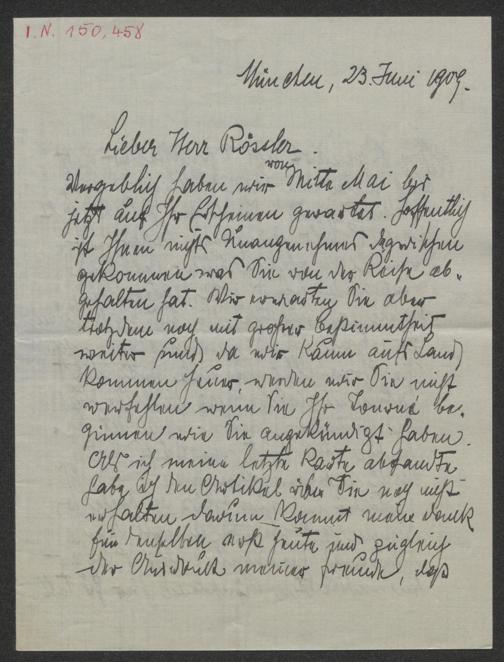 I.N. 150.458
München, 23. Juni 1909.
Lieber Herr Rössler.
Vergeblich haben wir von Mitte Mai bis
jetzt auf Ihr Erscheinen gewartet. Hoffentlich
ist Ihnen nichts Unangenehmes dazwischen
gekommen was Sie von der Reise ab-
gehalten hat. Wir erwarten Sie aber
trotzdem noch mit großer Bestimmtheit
weiter und da wir kaum aufs Land
kommen heuer, werden wir Sie nicht
verfehlen wenn Sie Ihr Tourné be-
ginnen wie Sie angekündigt haben.
Als ich meine letzte Karte absandte
habe ich den Artikel über Sie noch nicht
erhalten darum kommt mein Dank
für denselben erst heute und zugleich
der Ausdruck meiner Freude, daß